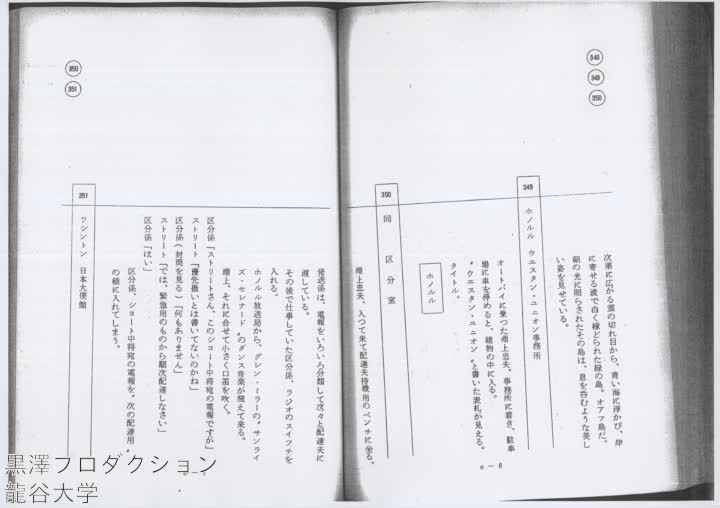 348
349
350
次第に広がる雲の切れ目から、青い海に浮かび、岸
に寄せる波で白く縁どられた緑の島。オアフ島だ。
朝の光に照らされたその島は、息を呑むような美し
い姿を見せている。
349 ホノルル ウエスタン・ユニオン事務所
オートバイに乗つた淵上忠夫、事務所に着き、駐車
場に車を停めると、建物の中に入る。
〝ウエスタン・ユニオン〟と書いた表札が見える。
タイトル。
ホノルル
350 同 区分室
淵上忠夫、入つて来て配達夫待機用のベンチに坐る。
e－6
350
351
発送係は、電報をいろいろ分類して次々と配達夫に
渡している。
その後で仕事していた区分係、ラジオのスイツチを
入れる。
ホノルル放送局から、グレン・ミラーの〝サンライ
ズ・セレナード〟のダンス音楽が聴えて来る。
淵上、それに合せて小さく口笛を吹く。
区分係「ストリートさん、このシヨート中将宛の電報ですが」
ストリート「優先扱いとは書いてないのかね」
区分係（封筒を見る）「何もありません」
ストリート「では、緊急用のものから順次配達しなさい」
区分係「はい」
区分係、シヨート中将宛の電報を〝次の配達用〟
の棚に入れてしまう。
351 ワシントン 日本大使館
黒澤プロダクション
龍谷大学